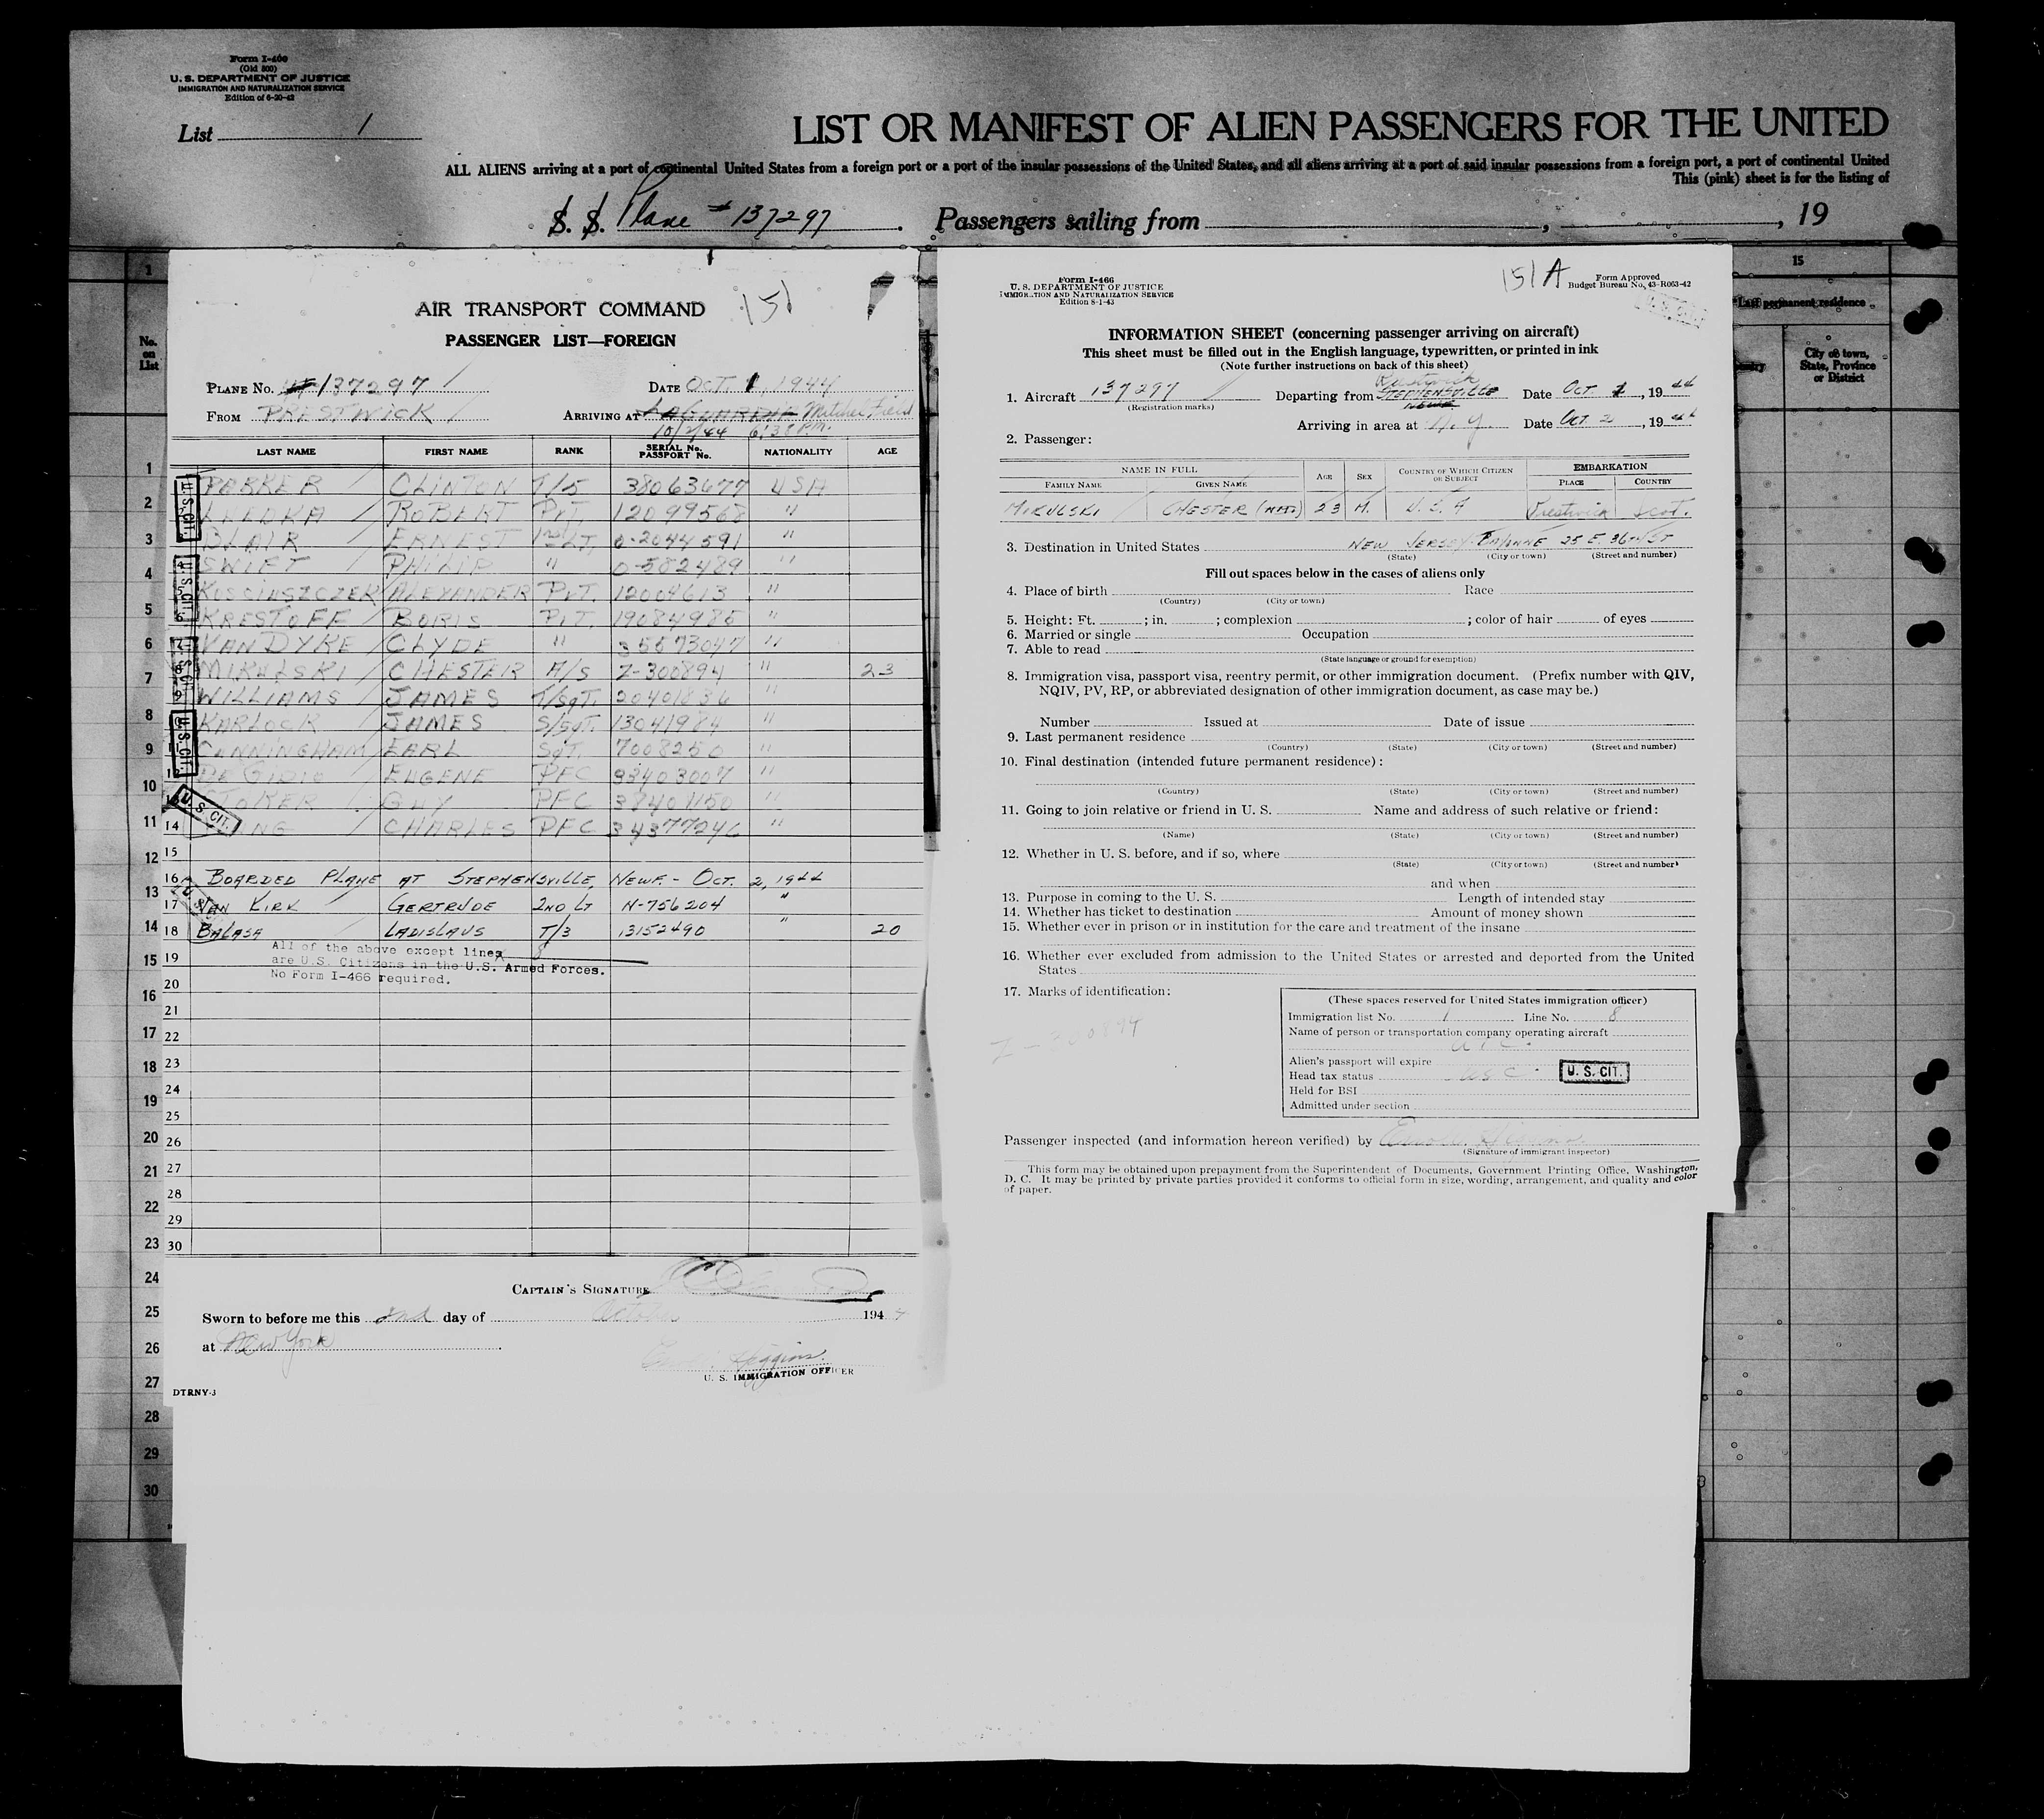 Form I-466
(Old 500)
U. S. DEPARTMENT OF JUSTICE
IMMIGRATION AND NATURALIZATION SERVICE
Edition of 6-20-42
List 1
LIST OR MANIFEST OF ALIEN PASSENGERS FOR THE UNITED
ALL ALIENS arriving at a port of continental United States from a foreign port or a port of the insular possessions of the United States, and all aliens arriving at a port of said insular possessions from a foreign port, a port of continental United
This (pink) sheet is for the listing of
S. S. Plane # 137297 . Passengers sailing from , , 19
No. on List
15
Last permanent residence
City or town, State, Province or District
AIR TRANSPORT COMMAND
151
PASSENGER LIST—FOREIGN
PLANE NO. 137297 DATE OCT. 1, 1944
FROM PRESTWICK ARRIVING AT LAGUARDIA Mitchel Field
10/2/44 6:38 P.M.
LAST NAME FIRST NAME RANK SERIAL No. PASSPORT No. NATIONALITY AGE
CLINTON T/5 38063677 USA
ROBERT PVT. 12099568 "
BLAIR ERNEST LT. 0-2044591 "
SWIFT PHILIP " 0-582489 "
ALEXANDER PVT. 12004613 "
KRESTOFF BORIS PVT. 19084985 "
VAN DYKE CLYDE " 35573047 "
MIKULSKI CHESTER A/S Z-300894 " 23
WILLIAMS JAMES T/SGT. 20401836 "
KARLOCK JAMES S/SGT. 13041984 "
CUNNINGHAM EARL SGT. 7008250 "
DE GIDIO EUGENE PFC 33403007 "
STOKER GUY PFC 38401150 "
14 CHARLES PFC 34377246 "
15
16 BOARDED PLANE AT STEPHENSVILLE, NEWF. - OCT. 2, 1944
17 VAN KIRK GERTRUDE 2ND LT N-756204 "
18 BALASA LADISLAUS T/3 13152490 " 20
19 All of the above except lines 8
are U.S. Citizens in the U.S. Armed Forces.
20 No Form I-466 required.
21
22
23
24
25
26
27
28
29
30
U. S. CIT.
U. S. CIT.
U. S. CIT.
U. S. CIT.
U. S. CIT.
CAPTAIN'S SIGNATURE
Sworn to before me this 2nd day of October 1944
at New York
Higgins
U. S. IMMIGRATION OFFICER
DTRNY-3
1
2
3
4
5
6
7
8
9
10
11
12
13
14
15
16
17
18
19
20
21
22
23
24
25
26
27
28
29
30
Form I-466
U. S. DEPARTMENT OF JUSTICE
IMMIGRATION AND NATURALIZATION SERVICE
Edition 8-1-43
151 A
Form Approved
Budget Bureau No. 43-R063-42
INFORMATION SHEET (concerning passenger arriving on aircraft)
This sheet must be filled out in the English language, typewritten, or printed in ink
(Note further instructions on back of this sheet)
1. Aircraft 137297 Departing from Prestwick STEPHENSVILLE NEWF. Date OCT 1, 1944
(Registration marks)
Arriving in area at N.Y. Date OCT 2, 1944
2. Passenger:
NAME IN FULL AGE SEX COUNTRY OF WHICH CITIZEN OR SUBJECT EMBARKATION
FAMILY NAME GIVEN NAME PLACE COUNTRY
MIKULSKI CHESTER (NMI) 23 M. U.S.A Prestwick Scot.
3. Destination in United States NEW JERSEY BAYONNE 25 E. 36TH ST
(State) (City or town) (Street and number)
Fill out spaces below in the cases of aliens only
4. Place of birth Race
(Country) (City or town)
5. Height: Ft. ; in. ; complexion ; color of hair of eyes
6. Married or single Occupation
7. Able to read
(State language or ground for exemption)
8. Immigration visa, passport visa, reentry permit, or other immigration document. (Prefix number with QIV,
NQIV, PV, RP, or abbreviated designation of other immigration document, as case may be.)
Number Issued at Date of issue
9. Last permanent residence
(Country) (State) (City or town) (Street and number)
10. Final destination (intended future permanent residence):
(Country) (State) (City or town) (Street and number)
11. Going to join relative or friend in U. S. Name and address of such relative or friend:
(Name) (State) (City or town) (Street and number)
12. Whether in U. S. before, and if so, where
(State) (City or town) (Street and number)
and when
13. Purpose in coming to the U. S. Length of intended stay
14. Whether has ticket to destination Amount of money shown
15. Whether ever in prison or in institution for the care and treatment of the insane
16. Whether ever excluded from admission to the United States or arrested and deported from the United
States
17. Marks of identification:
Z-300894
(These spaces reserved for United States immigration officer)
Immigration list No. 1 Line No. 8
Name of person or transportation company operating aircraft
A.T.C.
Alien's passport will expire
Head tax status USC U. S. CIT.
Held for BSI
Admitted under section
Passenger inspected (and information hereon verified) by
(Signature of immigrant inspector)
This form may be obtained upon prepayment from the Superintendent of Documents, Government Printing Office, Washington,
D. C. It may be printed by private parties provided it conforms to official form in size, wording, arrangement, and quality and color
of paper.